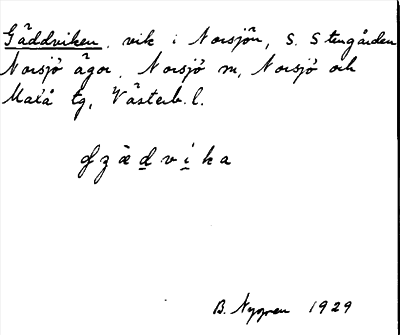 Gäddviken, vik i Norsjön, S. Stengården
Norsjö ägor, Norsjö sn, Norsjö och
Malå tg, Västerb. l.
B. Nygren 1929